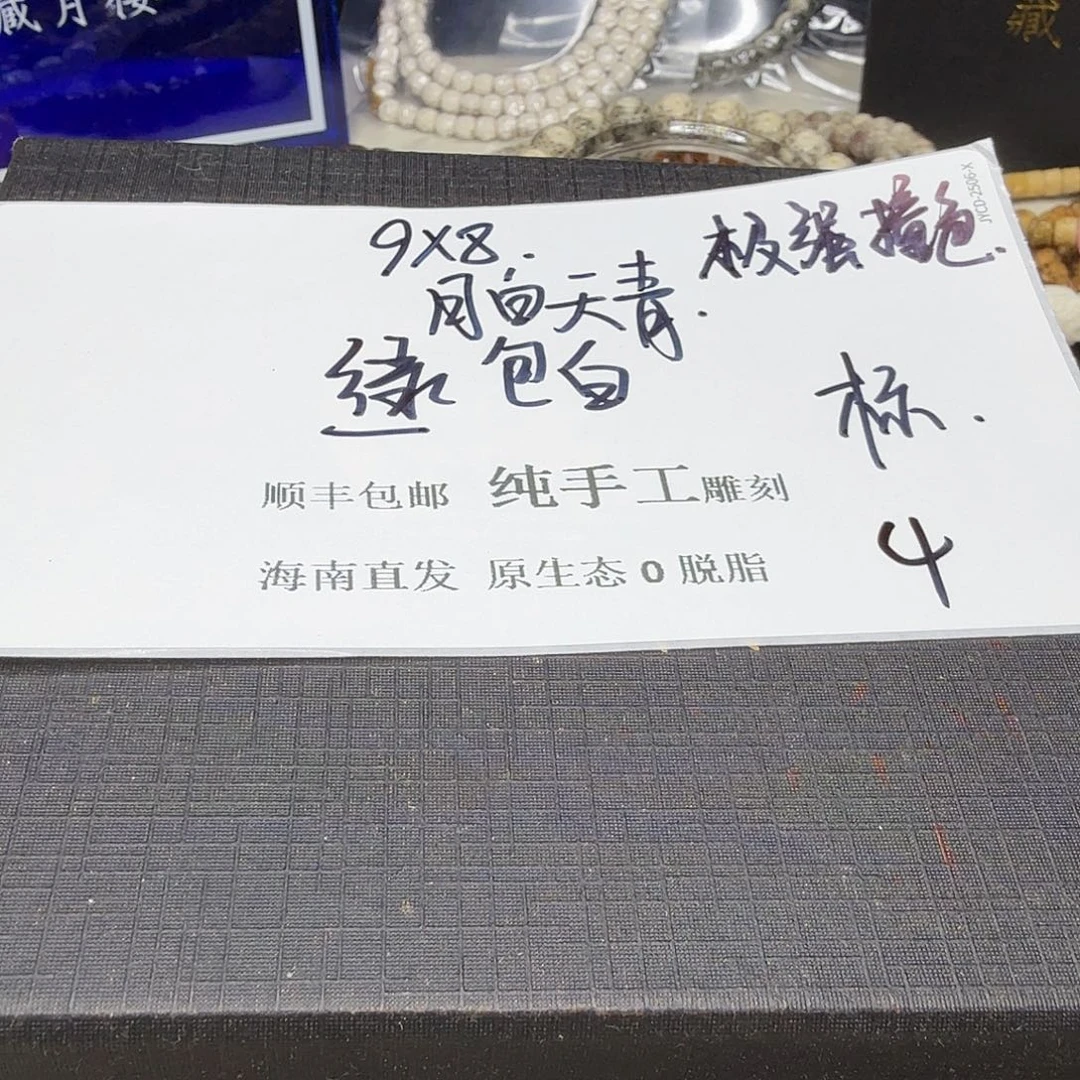 藏月楼
藏
JYCD-2509-X
9X8.
极强撞色.
月白天青.
绿包白
标.
顺丰包邮 纯手工雕刻
4
海南直发 原生态0脱脂